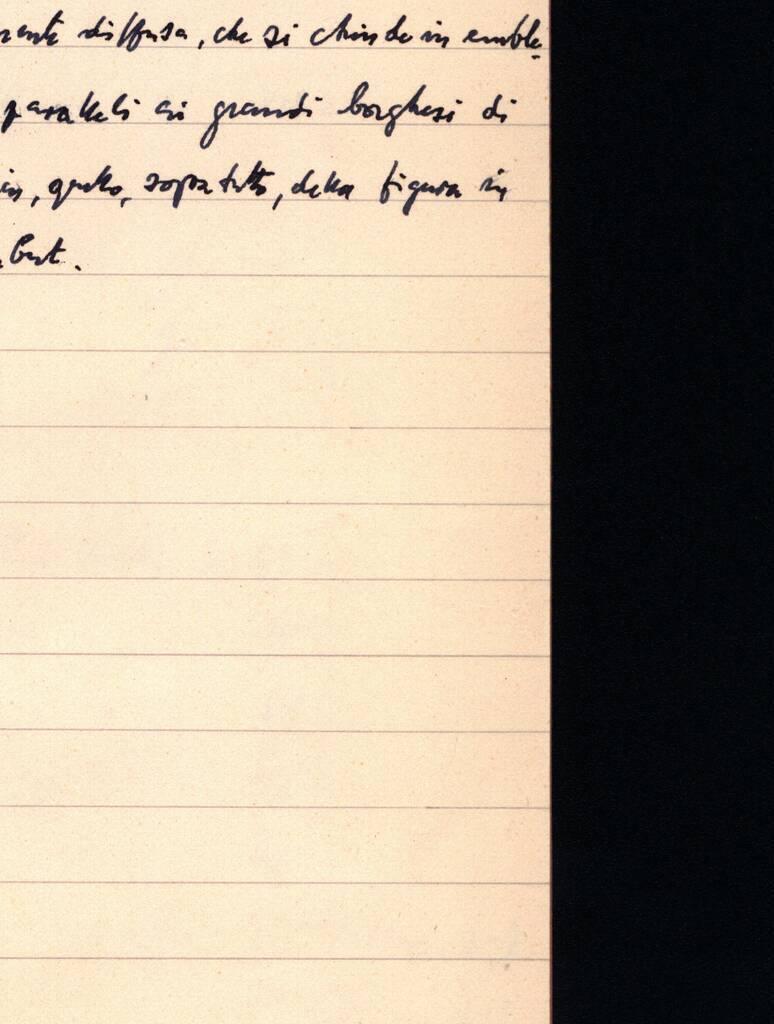 diffusa, che si chiude in emble
paralleli ai grandi borghesi di
quello, sopratutto, della figura in